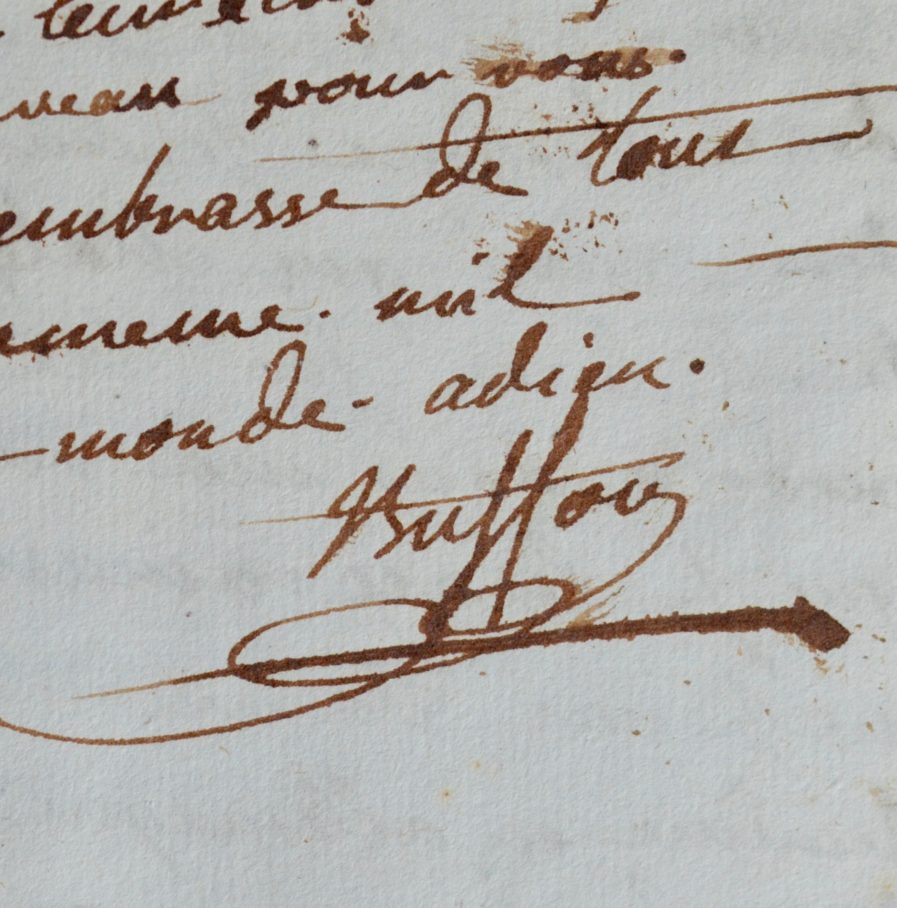 pour vous.
embrasse de tout
meme. mil
monde. adieu.
Buffon